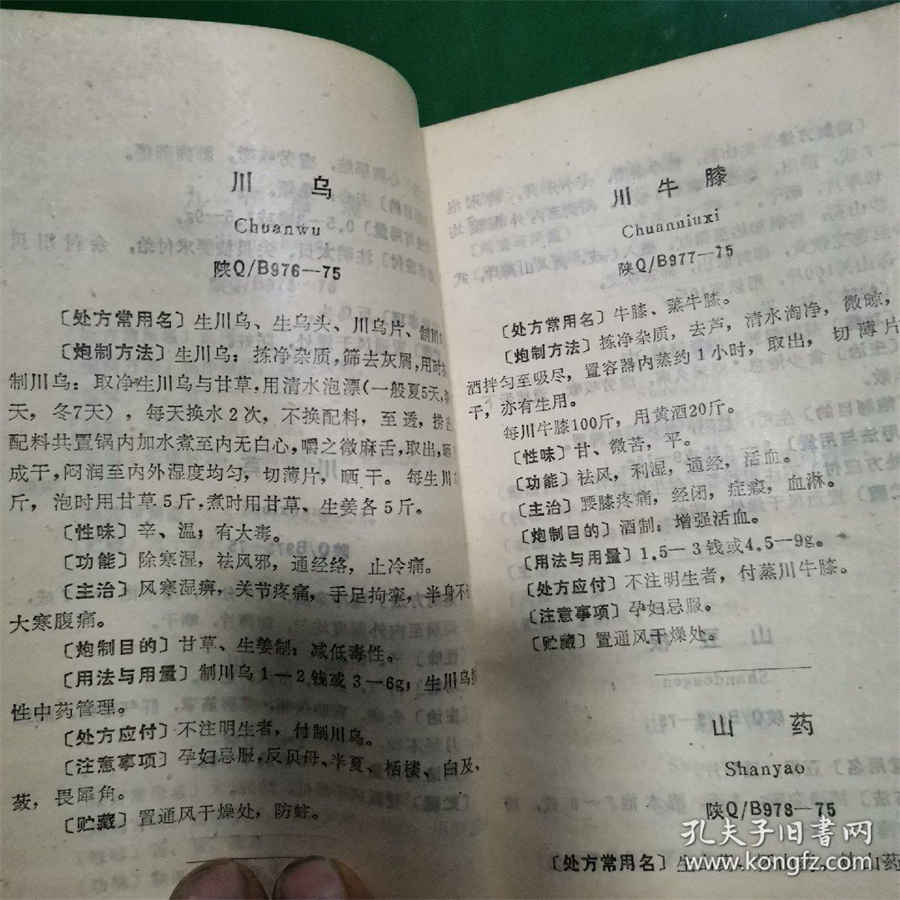 川乌
Chuanwu
陕Q/B976—75
〔处方常用名〕生川乌、生乌头、川乌片、制川
〔炮制方法〕生川乌：拣净杂质，筛去灰屑，用时
制川乌：取净生川乌与甘草，用清水泡漂(一般夏5天，
天，冬7天)，每天换水2次，不换配料，至透，捞
配料共置锅内加水煮至内无白心，嚼之微麻舌，取出，晒
成干，闷润至内外湿度均匀，切薄片，晒干。每生川
斤，泡时用甘草5斤，煮时用甘草、生姜各5斤。
〔性味〕辛、温；有大毒。
〔功能〕除寒湿，祛风邪，通经络，止冷痛。
〔主治〕风寒湿痹，关节疼痛，手足拘挛，半身不
大寒腹痛。
〔炮制目的〕甘草、生姜制：减低毒性。
〔用法与用量〕制川乌1—2钱或3—6g；生川乌
性中药管理。
〔处方应付〕不注明生者，付制川乌。
〔注意事项〕孕妇忌服，反贝母、半夏、栝楼、白及、
蔹，畏犀角。
〔贮藏〕置通风干燥处，防蛀。
川牛膝
Chuanniuxi
陕Q/B977—75
〔处方常用名〕牛膝、蒸牛膝。
〔炮制方法〕拣净杂质，去芦，清水淘净，微晾，
酒拌匀至吸尽，置容器内蒸约1小时，取出，切薄片
干，亦有生用。
每川牛膝100斤，用黄酒20斤。
〔性味〕甘、微苦，平。
〔功能〕祛风，利湿，通经，活血。
〔主治〕腰膝疼痛，经闭，症瘕，血淋。
〔炮制目的〕酒制：增强活血。
〔用法与用量〕1.5—3钱或4.5—9g。
〔处方应付〕不注明生者，付蒸川牛膝。
〔注意事项〕孕妇忌服。
〔贮藏〕置通风干燥处。
山药
Shanyao
陕Q/B978—75
〔处方常用名〕生山药
孔夫子旧书网
www.kongfz.com